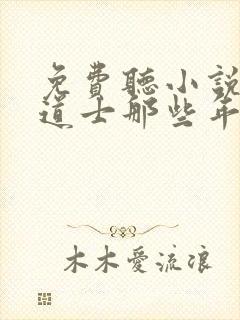 免費聽小說
道士那些年
木木愛流浪